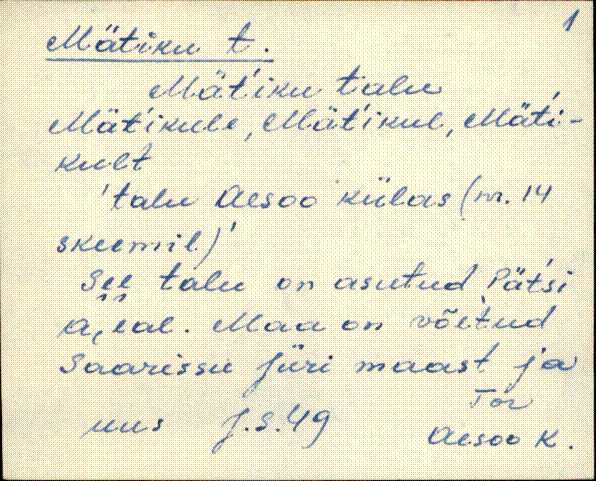 1
Mätiku t.
Mät'iku talu
Mät'ikule, Mät'ikul, Mät'i-
kult
'talu Aesoo külas (nr. 14
skeemil)'
See talu on asutud Pät'si
aeal. Maa on võetud
Saarissu Jüri maast ja
uus J.S.49
Tor
Aesoo K.